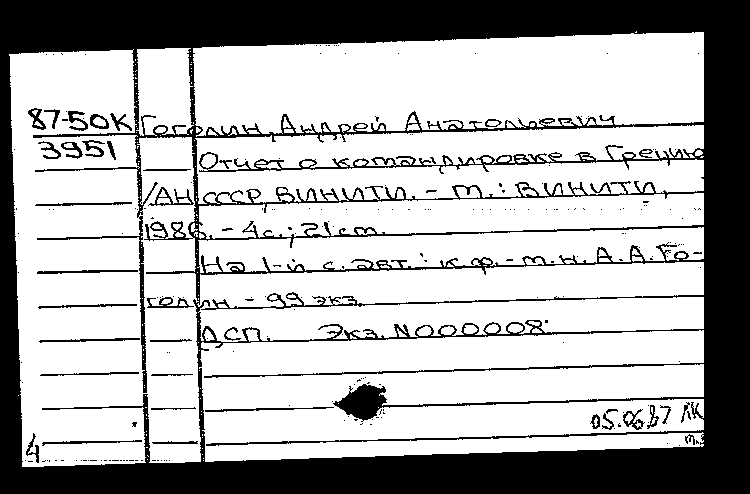 87-50К Гоголин, Андрей Анатольевич
3951 Отчет о командировке в Грецию
/АН СССР, ВИНИТИ. - М.: ВИНИТИ,
1986. - 4с.; 21см.
На 1-й с. авт.: к.ф.-м.н. А.А. Го-
голин. - 99 экз.
ДСП. Экз. N000008:
05.06.87 ЛК
4